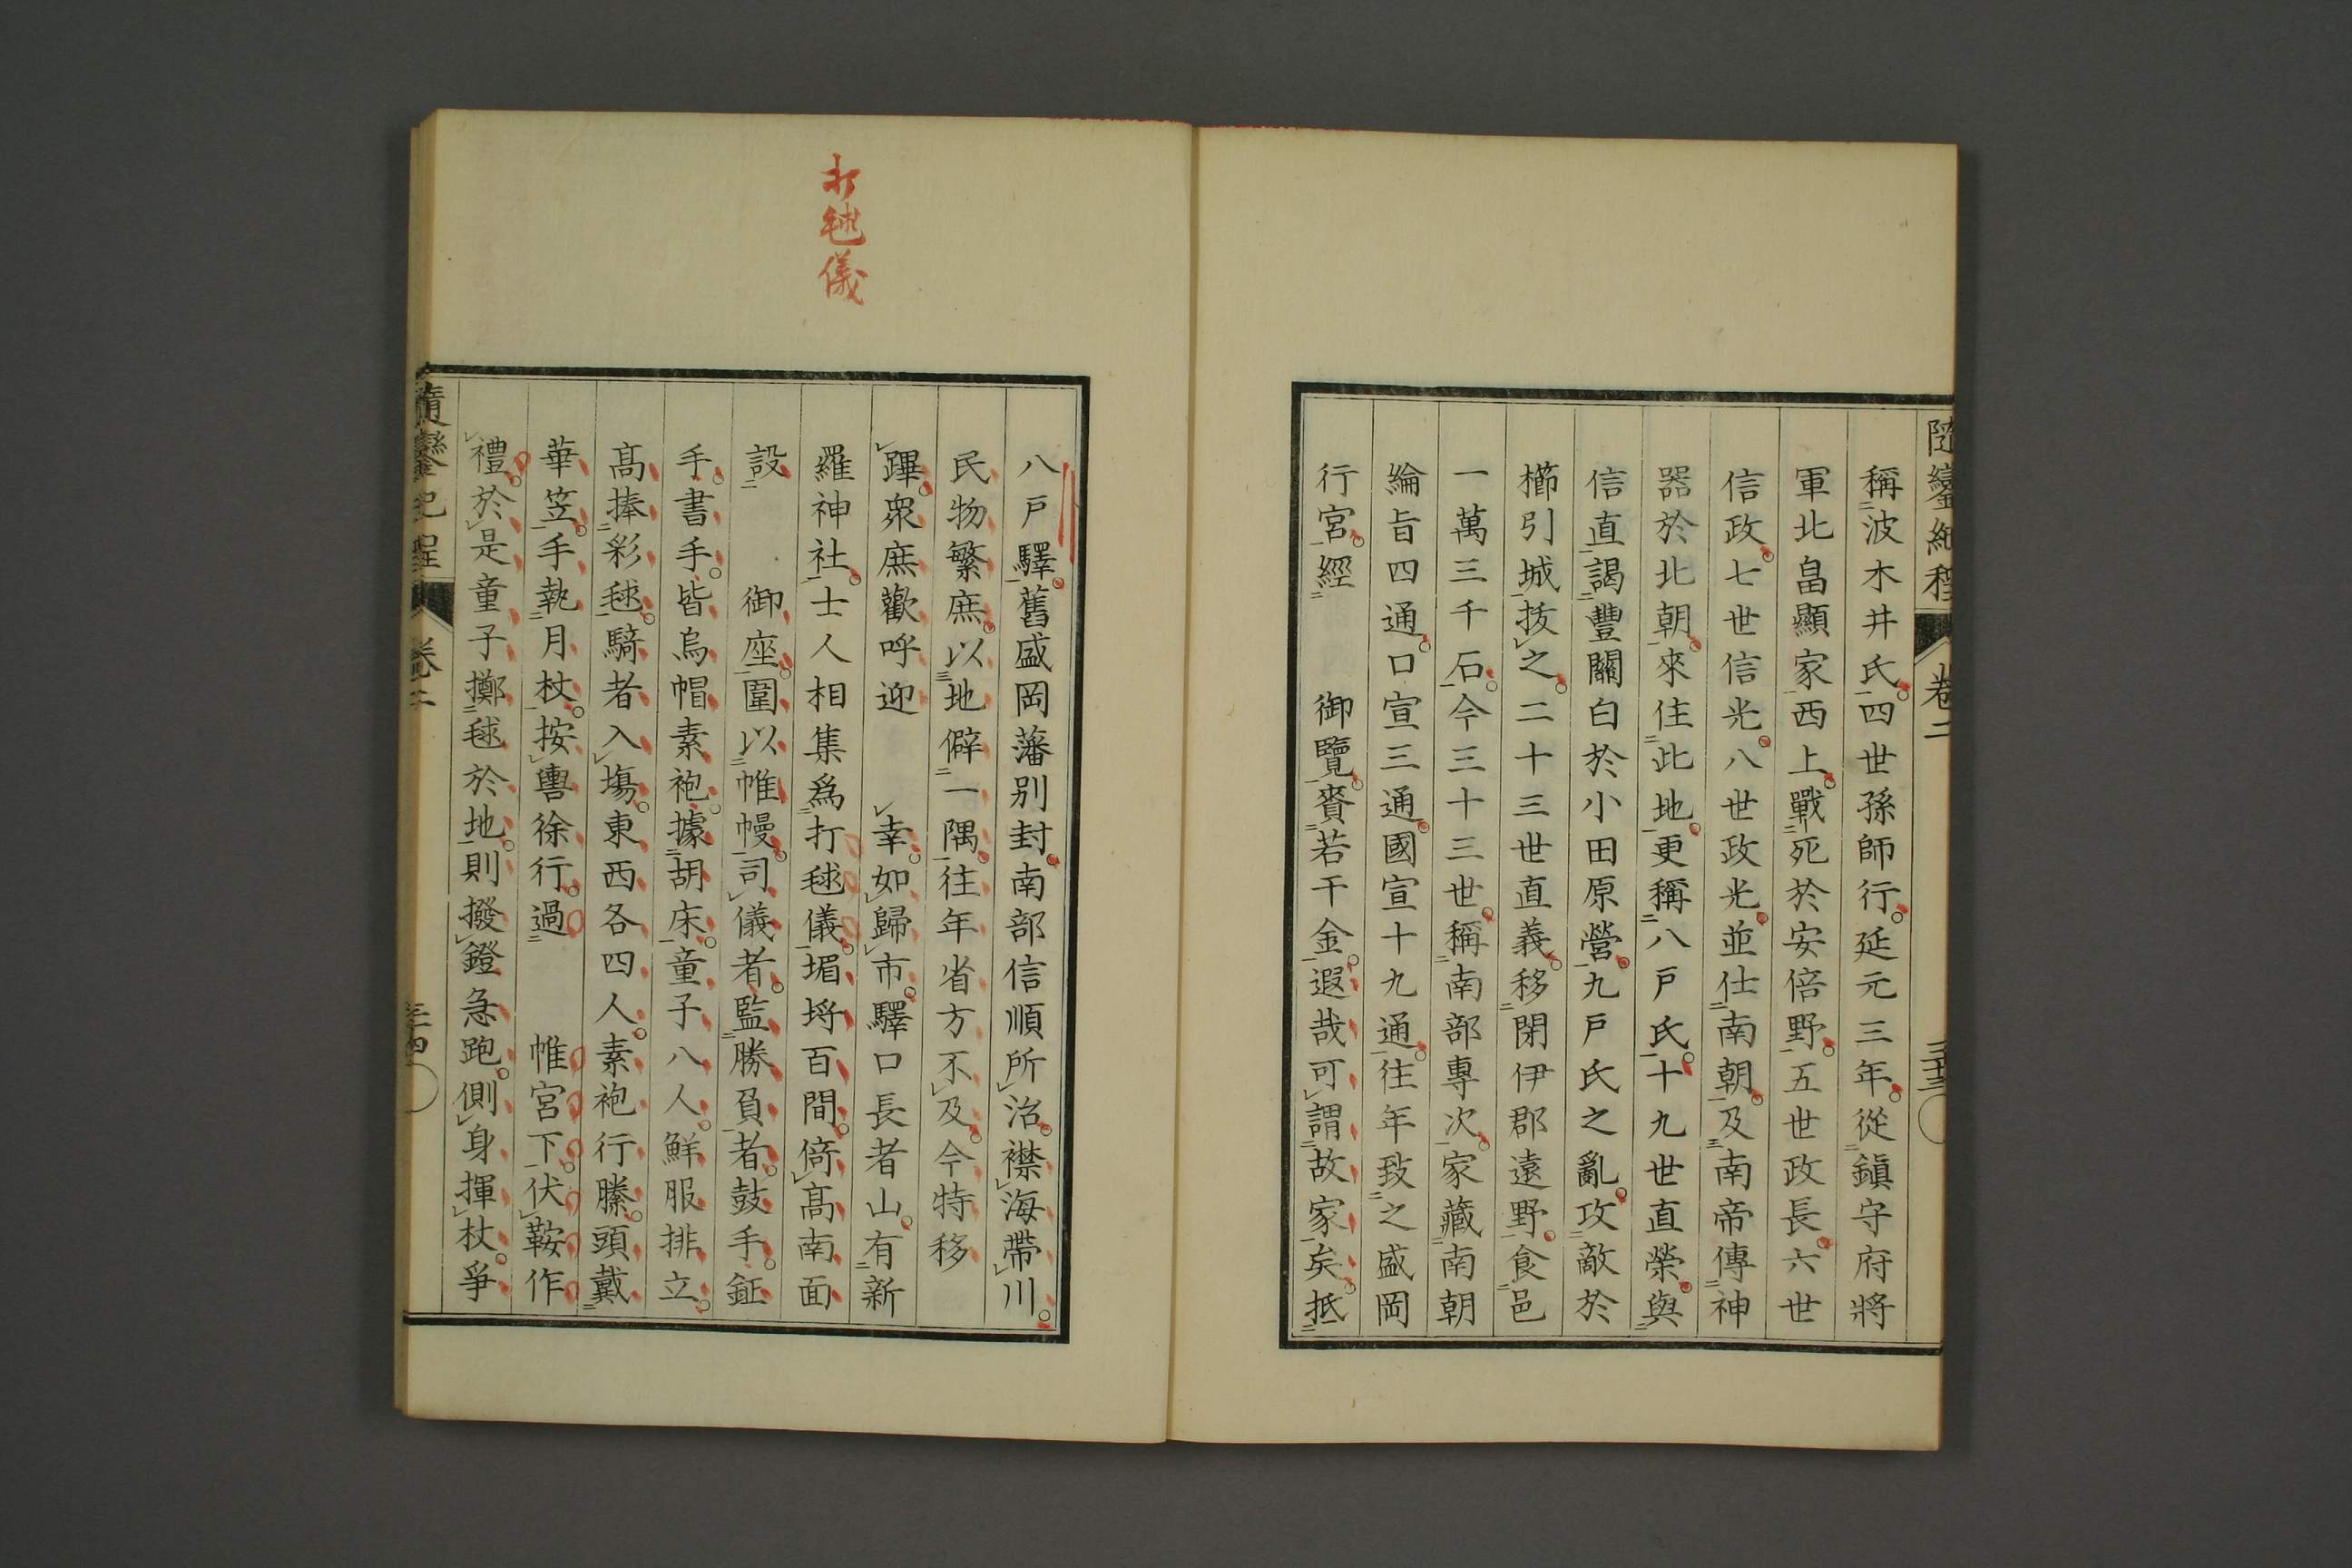 隨鑾紀程 卷二 三十三
稱波木井氏四世孫師行延元三年從鎭守府將
軍北畠顯家西上戰死於安倍野五世政長六世
信政七世信光八世政光並仕南朝及南帝傳神
器於北朝來住此地更稱八戶氏十九世直榮與
信直謁豐關白於小田原營九戶氏之亂攻敵於
櫛引城拔之二十三世直義移閉伊郡遠野食邑
一萬三千石今三十三世稱南部專次家藏南朝
綸旨四通口宣三通國宣十九通往年致之盛岡
行宮經　御覽賚若干金遐哉可謂故家矣抵
八戶驛舊盛岡藩別封南部信順所治襟海帶川
民物繁庶以地僻一隅往年省方不及今特移
蹕衆庶歡呼迎　幸如歸市驛口長者山有新
羅神社士人相集爲打毬儀堳埒百間倚高南面
設　御座圍以帷幔司儀者監勝負者鼓手鉦
手書手皆烏帽素袍據胡床童子八人鮮服排立
高捧彩毬騎者入場東西各四人素袍行縢頭戴
華笠手執月杖按轡徐行過　帷宮下伏鞍作
禮於是童子擲毬於地則撥鐙急跑側身揮杖爭
隨鑾紀程 卷二 三十四
打毬儀